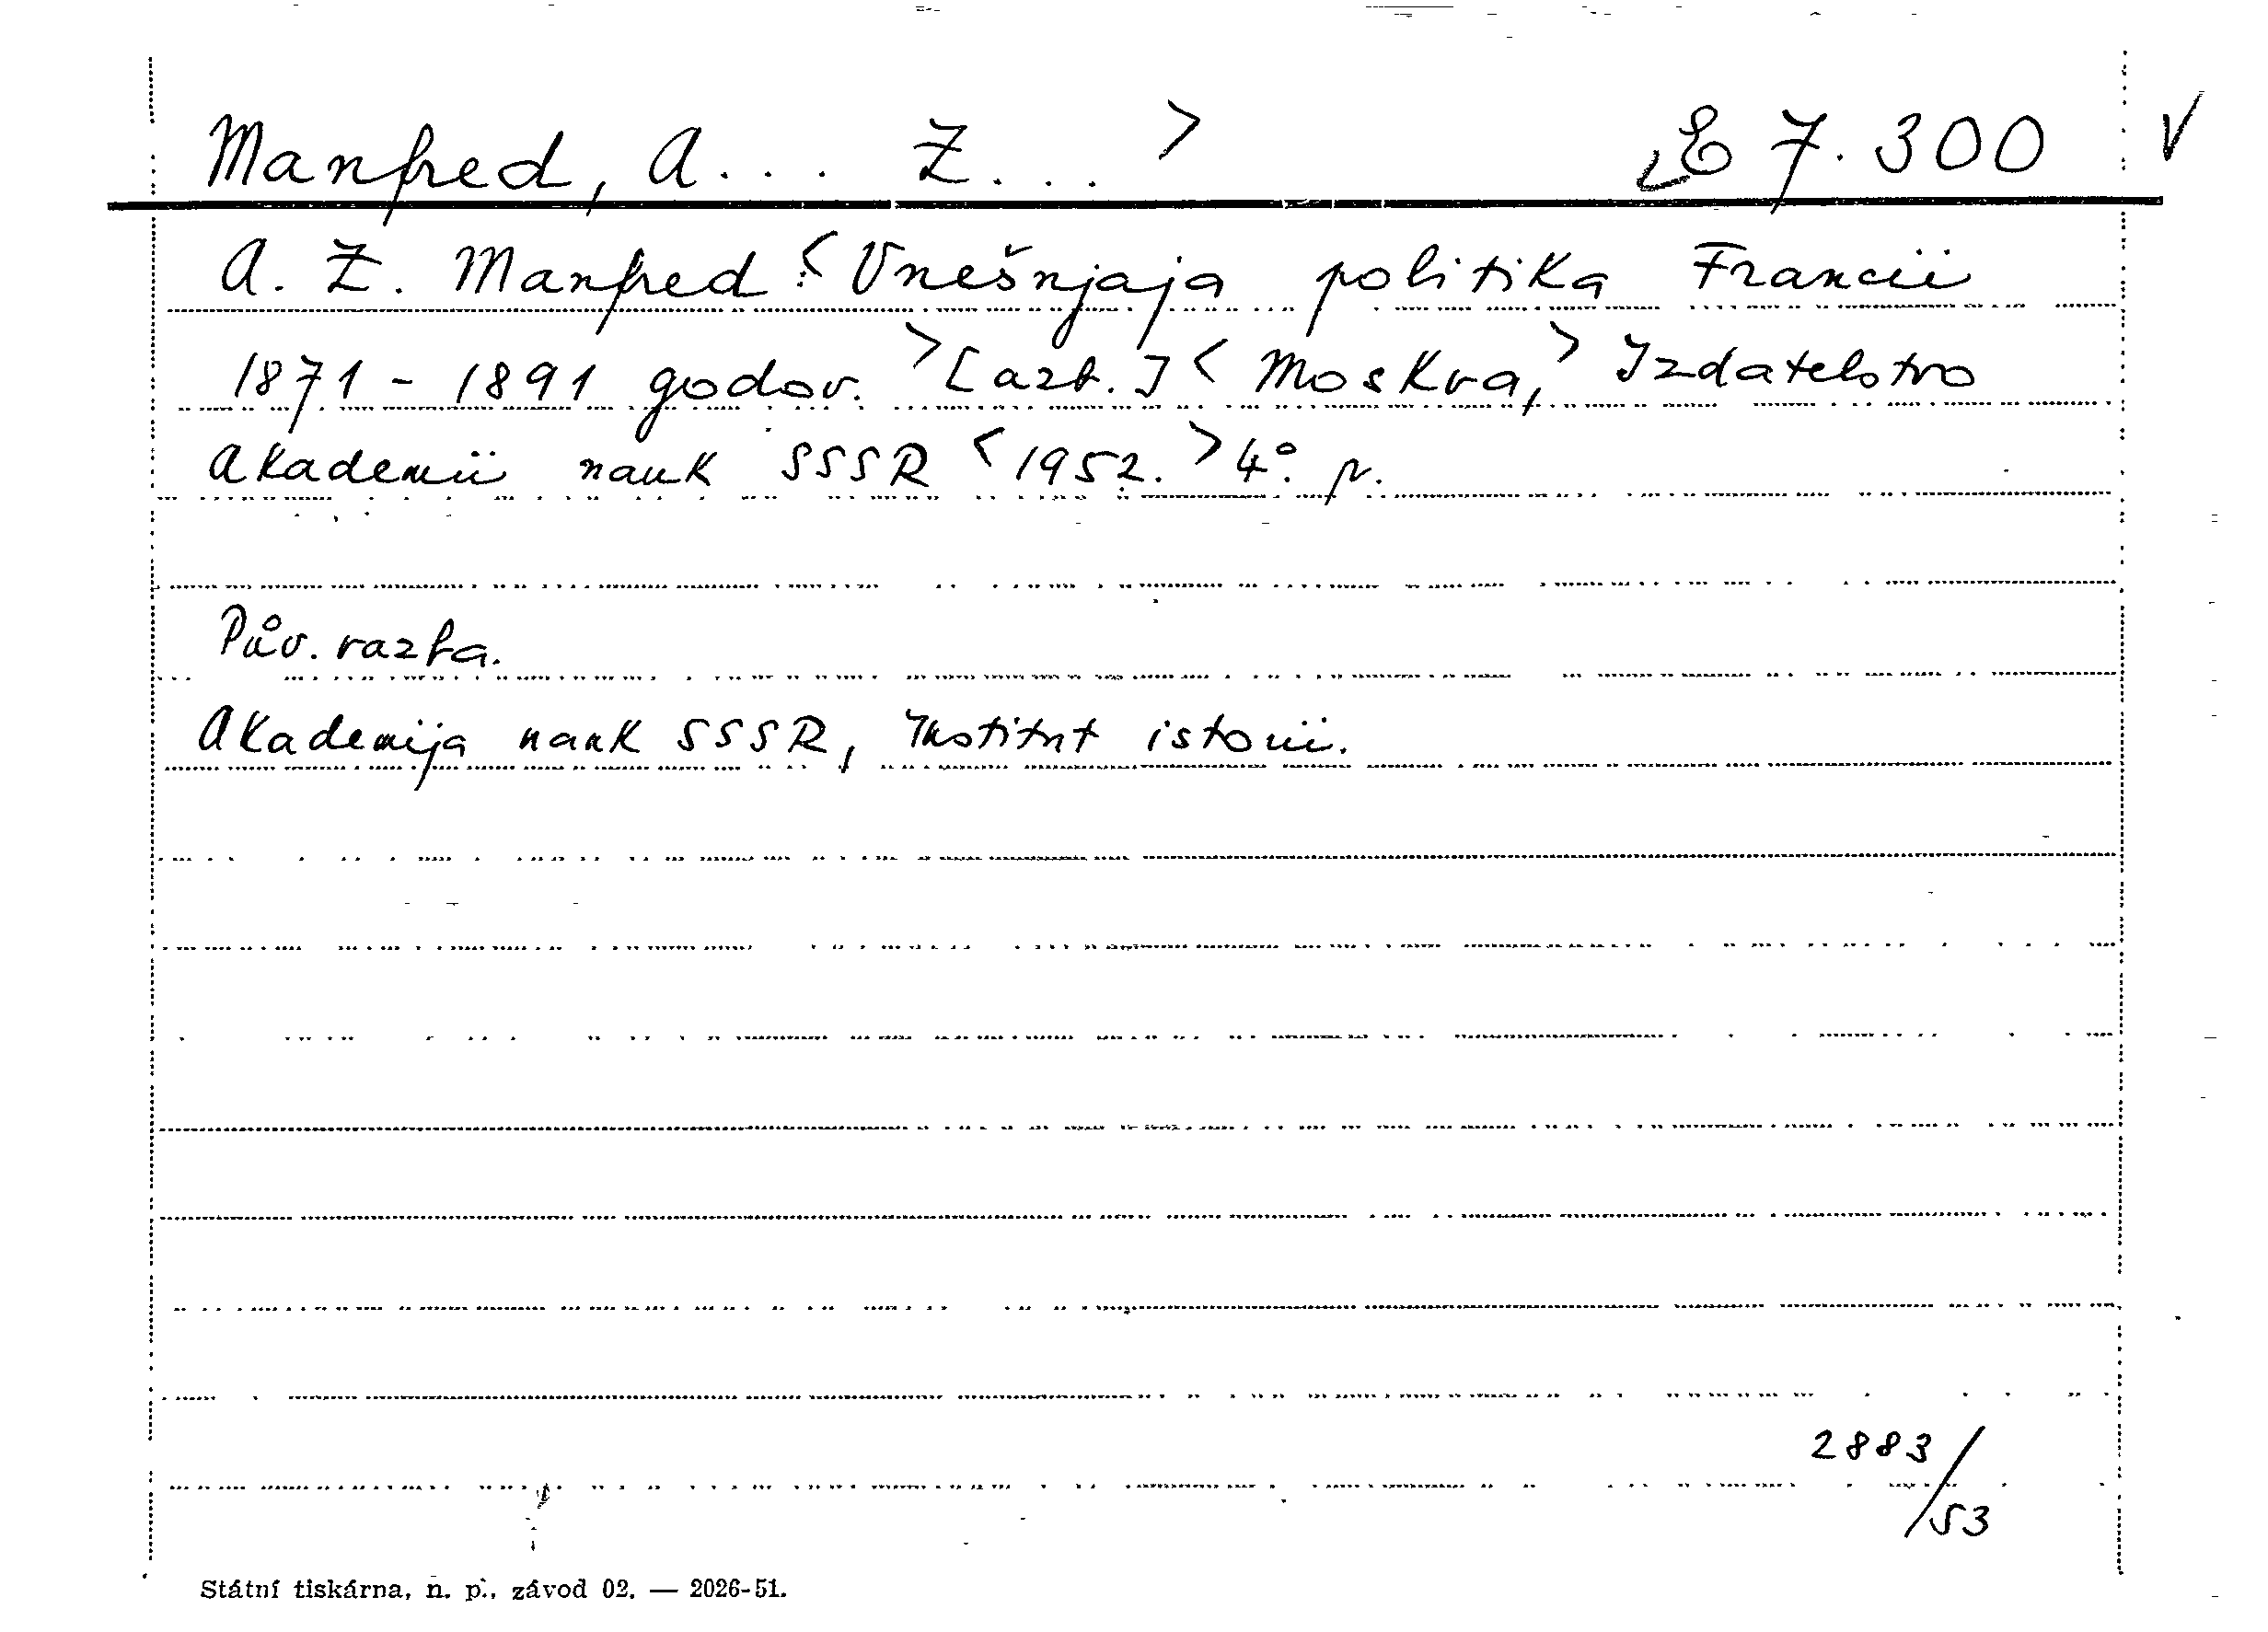 Manfred, A... Z... > < E 7.300 V
A. Z. Manfred < Vnešnjaja politika Francii
1871 - 1891 godov. > [azb.] < Moskva, > Izdatelstvo
Akademii nauk SSSR < 1952. > 4°. p.
Pův. vazba.
Akademija nauk SSSR, Institut istorii.
2883/53
Státní tiskárna, n. p., závod 02. — 2026-51.